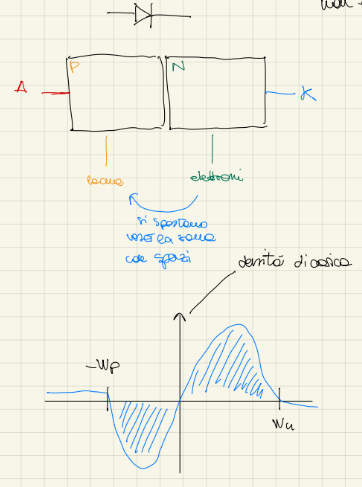 non
P
N
A
K
lacune
elettroni
si spostano
verso la zona
con spazi
densità di carica
-Wp
Wn